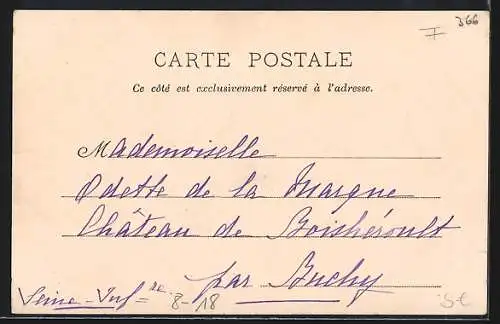 366
CARTE POSTALE
Ce côté est exclusivement réservé à l'adresse.
Mademoiselle
Odette de la Margue
Château de Boishéroult
par Buchy
Seine-Infre
8-18